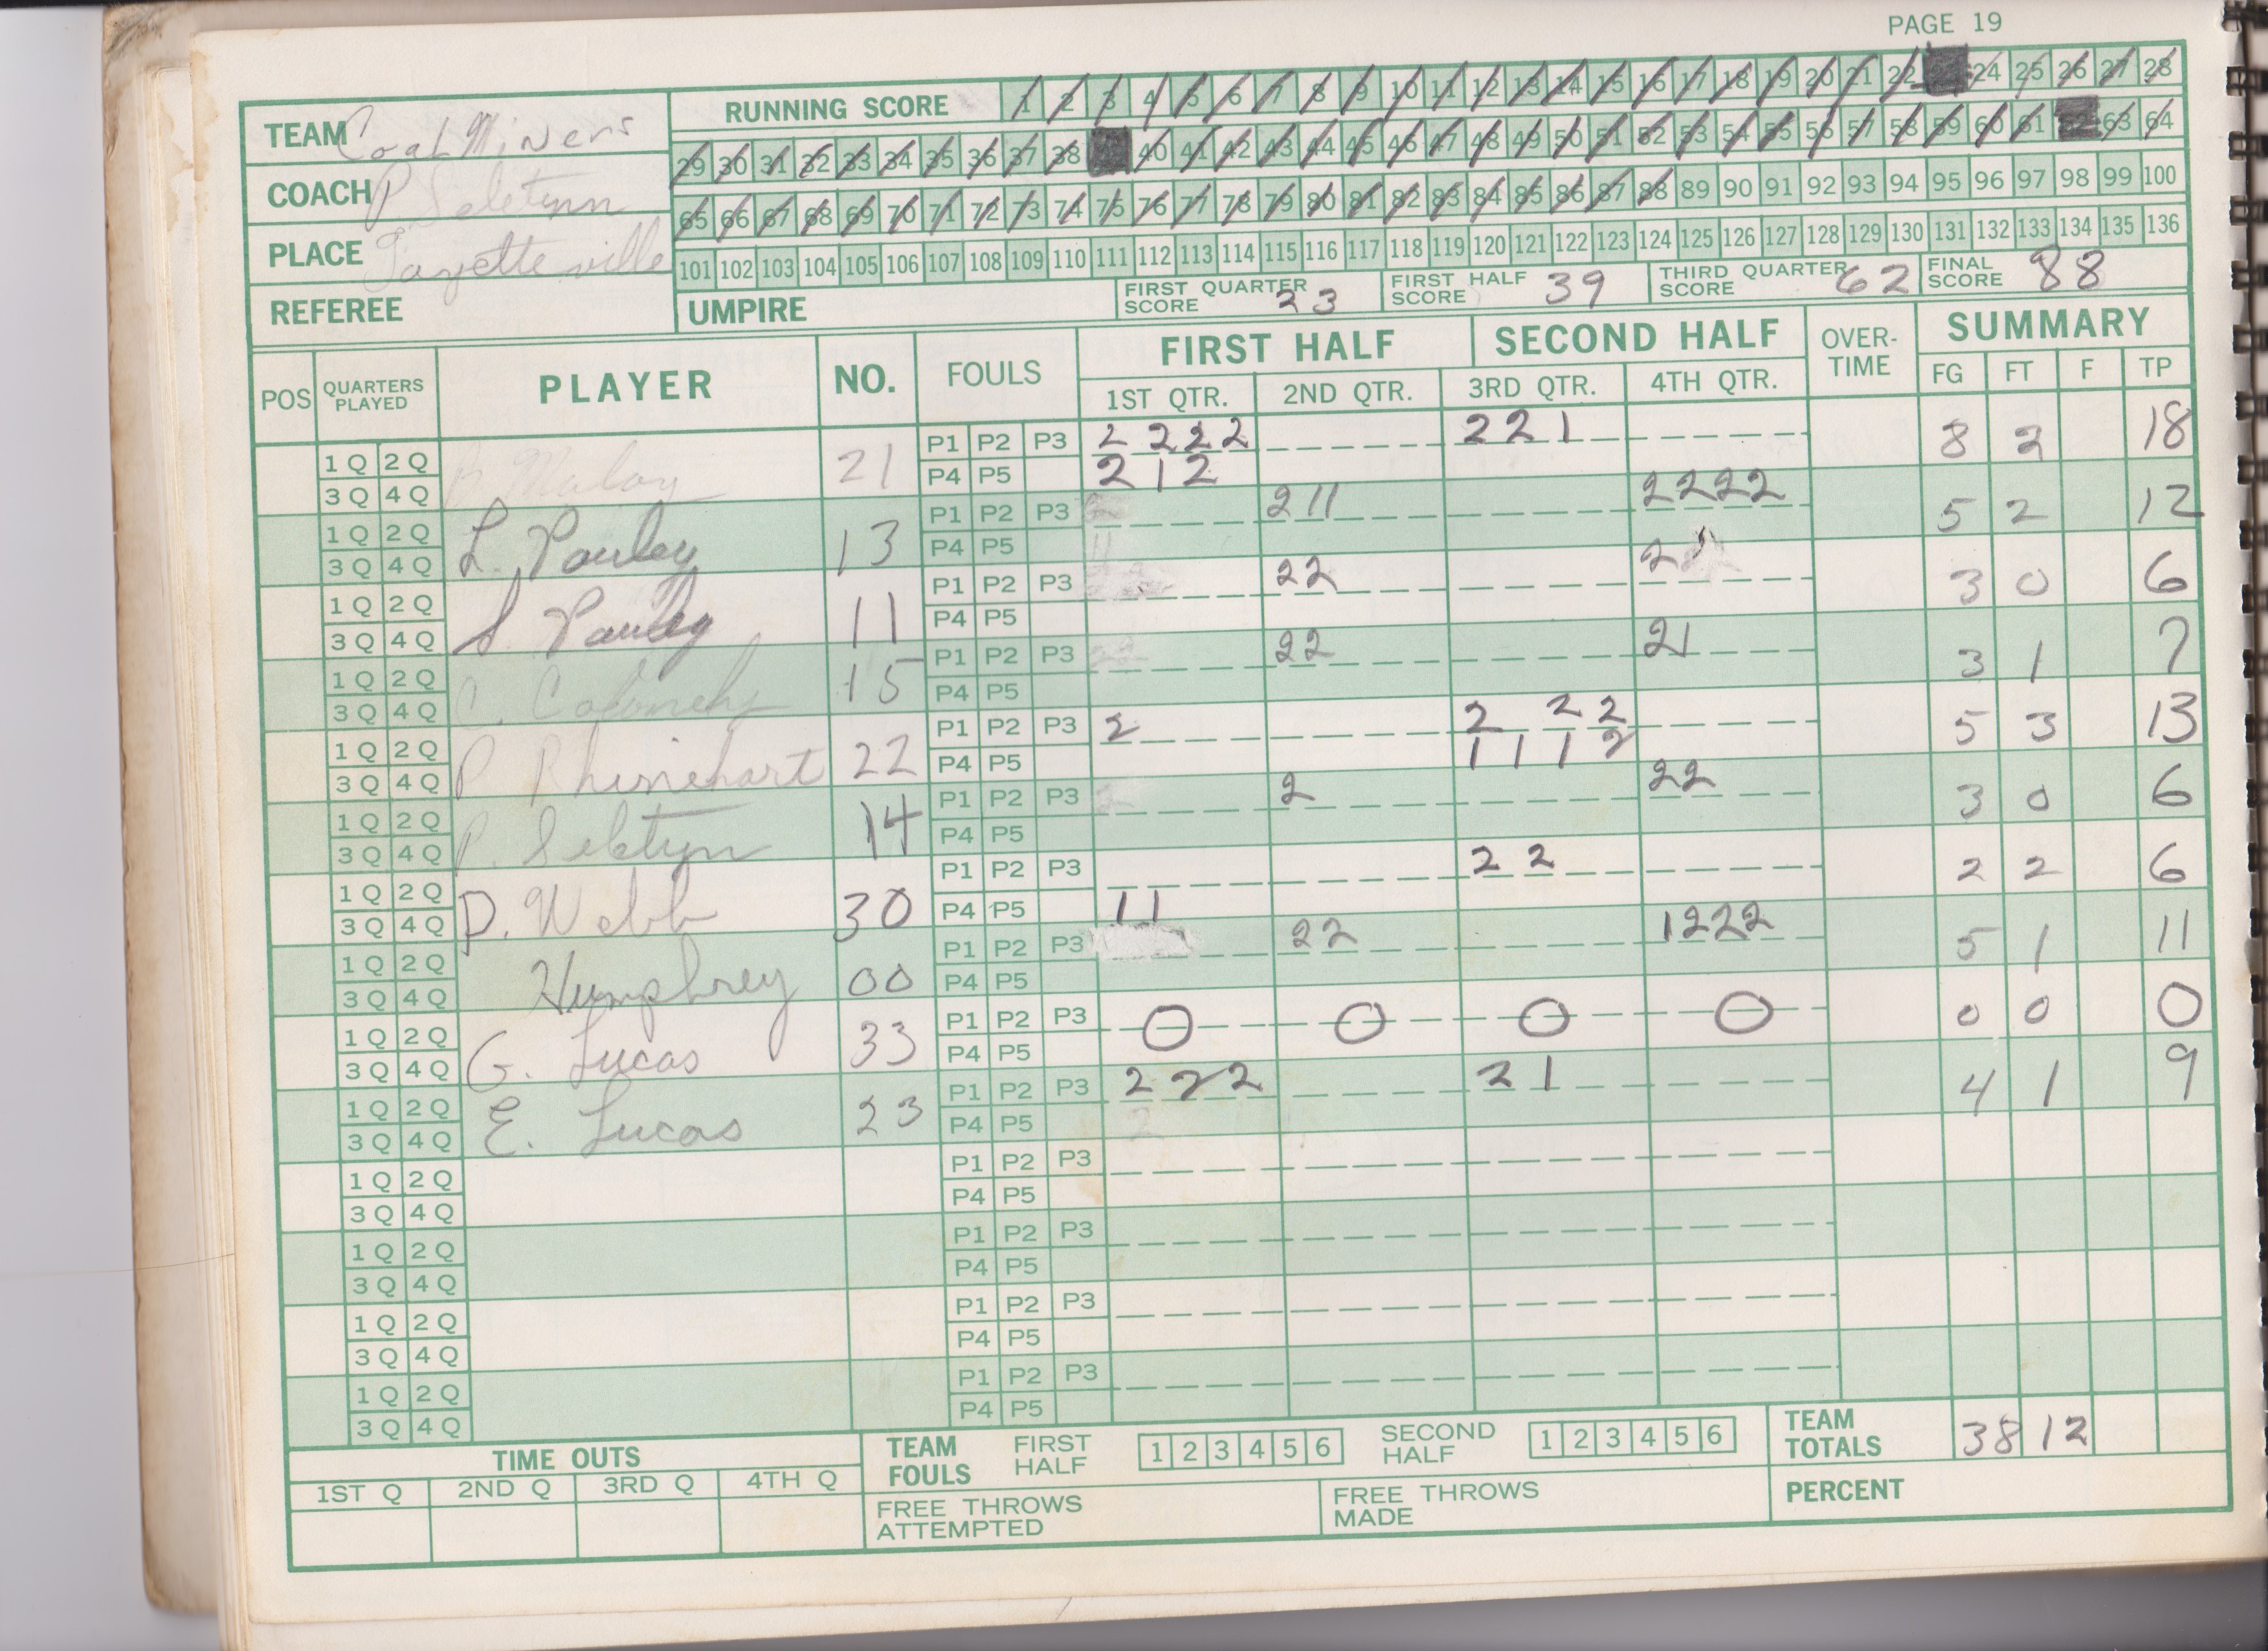 PAGE 19
TEAM Coal Miners
RUNNING SCORE 1 2 3 4 5 6 7 8 9 10 11 12 13 14 15 16 17 18 19 20 21 22 24 25 26 27 28
29 30 31 32 33 34 35 36 37 38 40 41 42 43 44 45 46 47 48 49 50 51 52 53 54 55 56 57 58 59 60 61 62 63 64
COACH P
65 66 67 68 69 70 71 72 73 74 75 76 77 78 79 80 81 82 83 84 85 86 87 88 89 90 91 92 93 94 95 96 97 98 99 100
PLACE Fayetteville
101 102 103 104 105 106 107 108 109 110 111 112 113 114 115 116 117 118 119 120 121 122 123 124 125 126 127 128 129 130 131 132 133 134 135 136
REFEREE
UMPIRE
FIRST QUARTER SCORE 23
FIRST HALF SCORE 39
THIRD QUARTER SCORE 62
FINAL SCORE 88
POS QUARTERS PLAYED PLAYER NO. FOULS FIRST HALF SECOND HALF OVER-TIME SUMMARY
1ST QTR. 2ND QTR. 3RD QTR. 4TH QTR. FG FT F TP
1Q 2Q 21 P1 P2 P3 2 2 2 2 2 2 1 8 2 18
3Q 4Q P4 P5 2 1 2
1Q 2Q L. Pauley 13 P1 P2 P3 2 1 1 2 2 2 2 5 2 12
3Q 4Q P4 P5
1Q 2Q S. Pauley 11 P1 P2 P3 2 2 2 3 0 6
3Q 4Q P4 P5
1Q 2Q C. 15 P1 P2 P3 2 2 2 1 3 1 7
3Q 4Q P4 P5
1Q 2Q P Rhinehart 22 P1 P2 P3 2 2 2 2 5 3 13
3Q 4Q P4 P5 1 1 1 2
1Q 2Q P. 14 P1 P2 P3 2 2 2 3 0 6
3Q 4Q P4 P5
1Q 2Q D. Webb 30 P1 P2 P3 2 2 2 2 6
3Q 4Q P4 P5 1 1
1Q 2Q Humphrey 00 P1 P2 P3 2 2 1 2 2 2 5 1 11
3Q 4Q P4 P5
1Q 2Q G. Lucas 33 P1 P2 P3 0 0 0 0 0 0 0
3Q 4Q P4 P5
1Q 2Q E. Lucas 23 P1 P2 P3 2 2 2 2 1 4 1 9
3Q 4Q P4 P5
1Q 2Q P1 P2 P3
3Q 4Q P4 P5
1Q 2Q P1 P2 P3
3Q 4Q P4 P5
1Q 2Q P1 P2 P3
3Q 4Q P4 P5
1Q 2Q P1 P2 P3
3Q 4Q P4 P5
TIME OUTS
1ST Q 2ND Q 3RD Q 4TH Q
TEAM FOULS FIRST HALF 1 2 3 4 5 6 SECOND HALF 1 2 3 4 5 6
TEAM TOTALS 38 12
FREE THROWS ATTEMPTED
FREE THROWS MADE
PERCENT